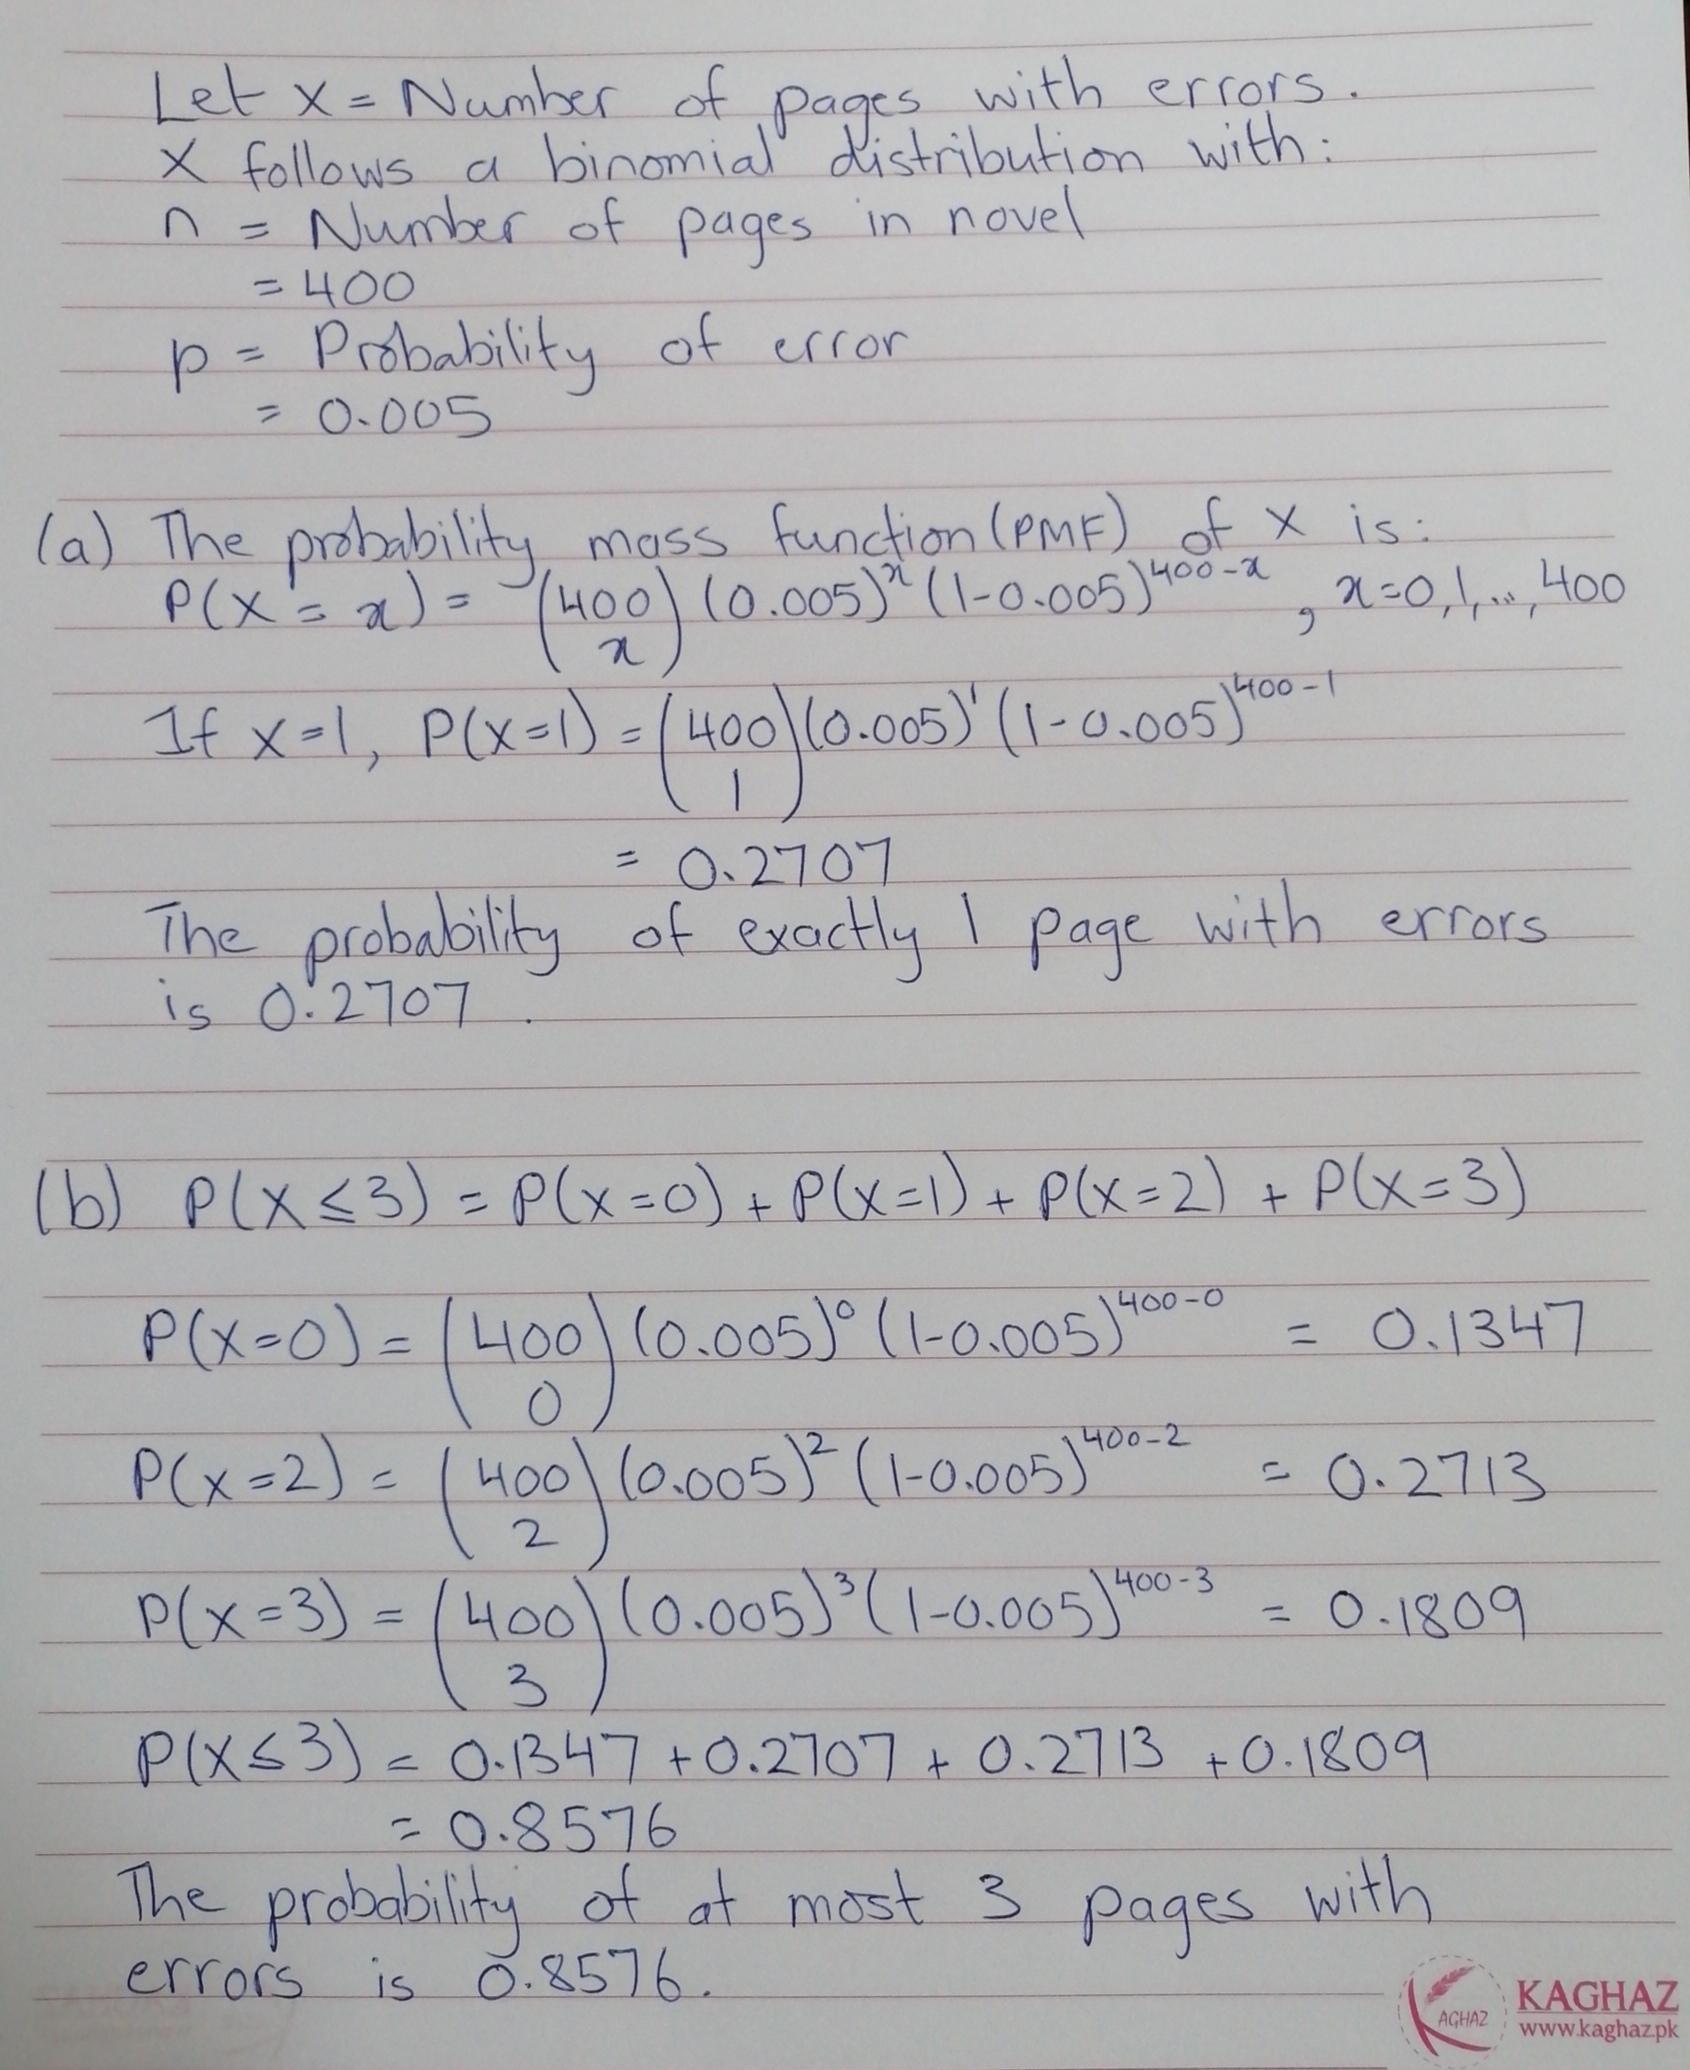 Let X = Number of pages with errors.
X follows a binomial distribution with:
n = Number of pages in novel
= 400
p = Probability of error
= 0.005
(a) The probability mass function (PMF) of X is:
P(X = x) = (400 x) (0.005)^x (1-0.005)^400-x , x=0,1,...,400
If X=1, P(X=1) = (400 1) (0.005)^1 (1-0.005)^400-1
= 0.2707
The probability of exactly 1 page with errors
is 0.2707.
(b) P(X≤3) = P(X=0) + P(X=1) + P(X=2) + P(X=3)
P(X=0) = (400 0) (0.005)^0 (1-0.005)^400-0 = 0.1347
P(X=2) = (400 2) (0.005)^2 (1-0.005)^400-2 = 0.2713
P(X=3) = (400 3) (0.005)^3 (1-0.005)^400-3 = 0.1809
P(X≤3) = 0.1347 + 0.2707 + 0.2713 + 0.1809
= 0.8576
The probability of at most 3 pages with
errors is 0.8576.
AGHAZ
KAGHAZ
www.kaghaz.pk